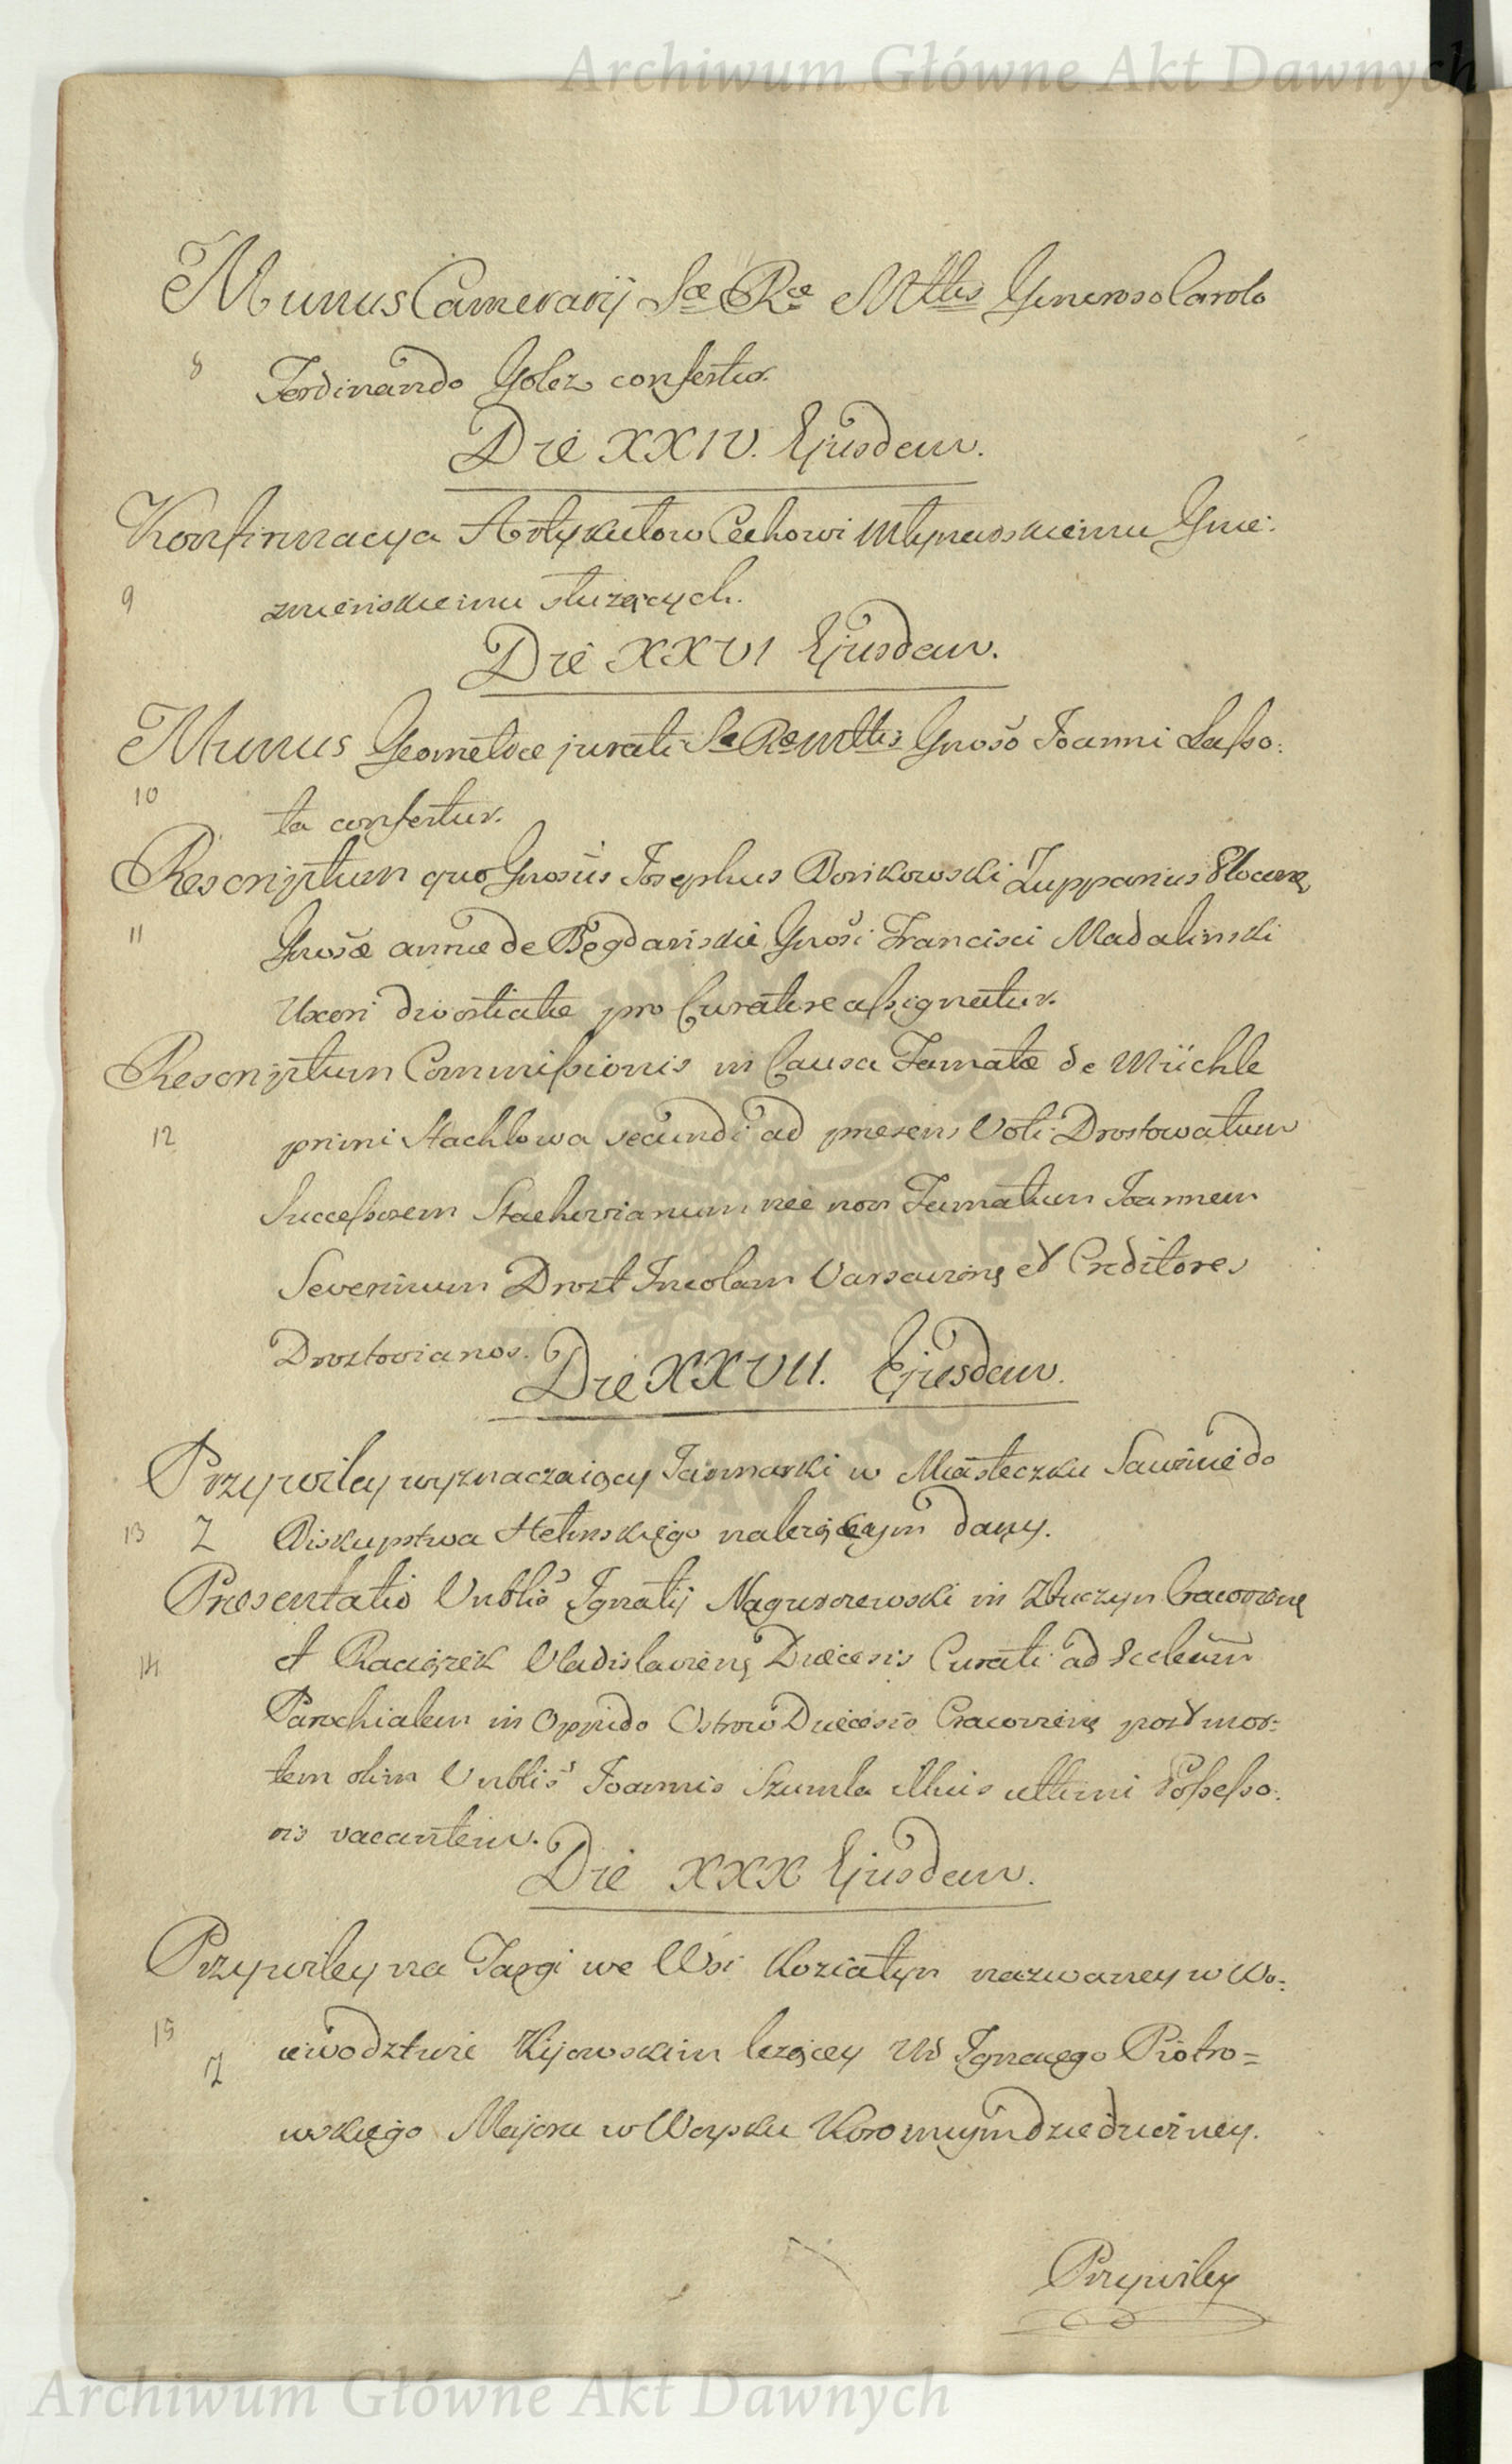 Archiwum Główne Akt Dawnych
Munus Camerarij Sæ Ræ Mttis Generoso Carolo
8 Ferdinando Golcz confertur.
Die XXIV. Ejusdem.
Konfirmacya Artykułow Cechowi Młynarskiemu Gnie:
9 znieńskiemu służących.
Die XXVI Ejusdem.
Munus Geometræ jurati Sæ Ræ Mttis Gnoso Joanni Lasso:
10
ta confertur.
Rescriptum quo Gnosus Josephus Bonkowski Zupparius Plocens
11 Gnosæ Annæ de Bogdanskie Gnosi Francisci Madalinski
Uxori divortiatæ pro Curatore assignatur.
Rescriptum Commissionis in Causa Famatæ de Müchle
12 primi Stachlowa secundi ad præsens Voti Drostowa tum
Successorem Stachovianum nec non Famatum Joannem
Severinum Drozt Incolam Varsaviens et Creditores
Droztovianos.
Die XXVII. Ejusdem.
Przywiley wyznaczaiący Jarmarki w Miasteczku Sawinie do
13 Z Biskupstwa Hełmskiego należącym dany.
Præsentatio Vnblis Ignatij Naguszewski in Zbuczyn Cracoviens
14 et Raciązek Vladislaviens Diæcesis Curati ad Eccleam
Parochialem in Oppido Ostrow Diæcesis Cracoviens post mor:
tem olim Vnblis Joannis Szumla illius ultimi Possesso:
ris vacantem.
Die XXX Ejusdem.
Przywiley na Targi we Wsi Koziatyn nazwaney w Wo:
15
Z iewodztwie Kijowskim leżącey Ur Ignacego Piotro=
wskiego Majora w Woysku Koronnym dziedziczney.
Przywiley
Archiwum Główne Akt Dawnych